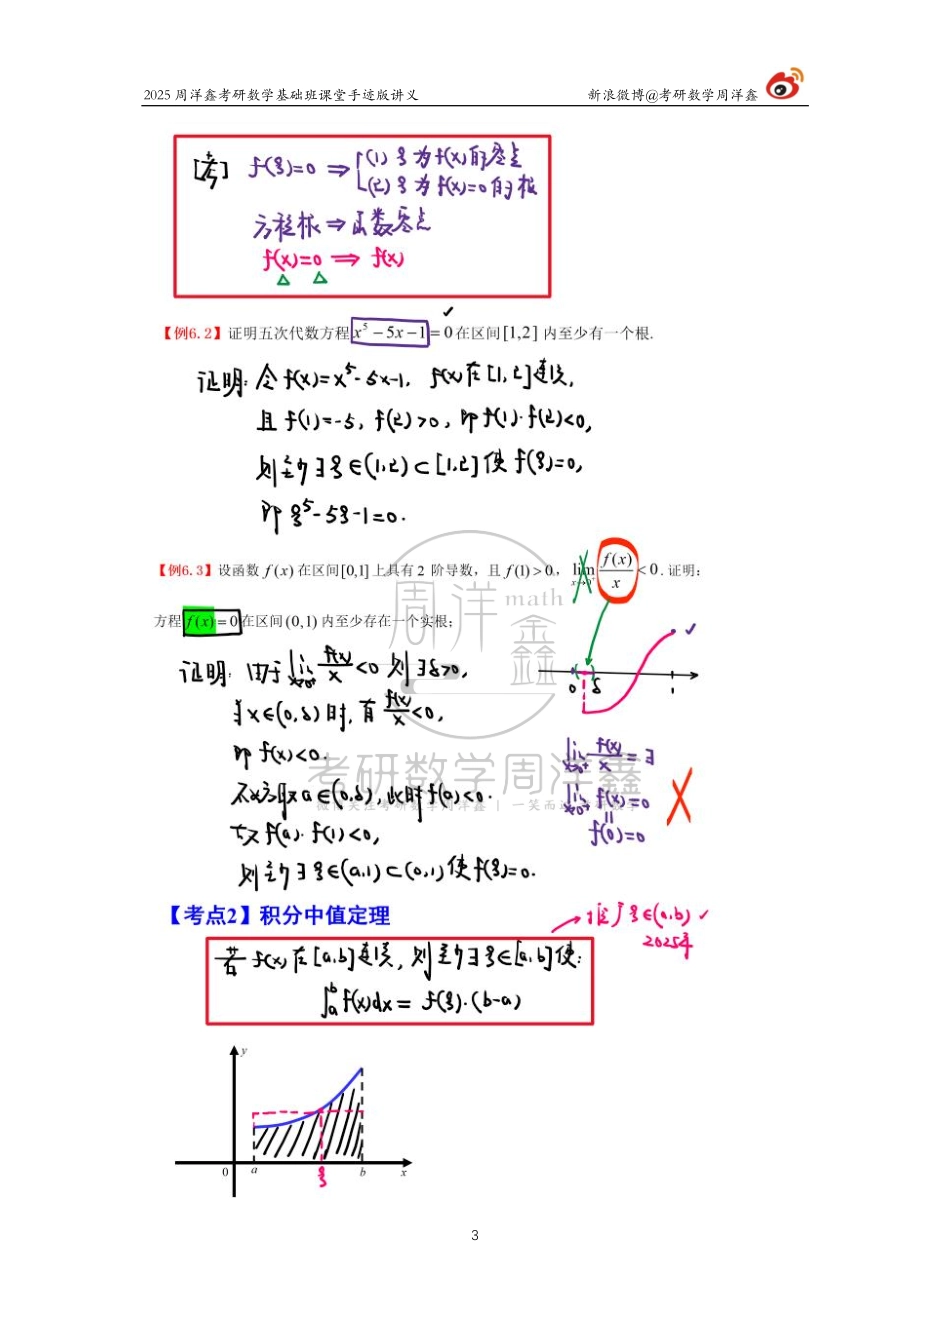 2025 周洋鑫考研数学基础班课堂手迹版讲义 新浪微博@考研数学周洋鑫
[考] f(ξ)=0 ⇒ (1) ξ为f(x)的零点
(2) ξ为f(x)=0的根
方程根 ⇒ 函数零点
f(x)=0 ⇒ f(x)
【例6.2】证明五次代数方程 x⁵-5x-1=0 在区间[1,2] 内至少有一个根.
证明: 令f(x)=x⁵-5x-1, f(x)在[1,2]连续,
且 f(1)=-5, f(2)>0, 即 f(1)·f(2)<0,
则至少∃ξ∈(1,2)⊂[1,2]使 f(ξ)=0,
即 ξ⁵-5ξ-1=0.
【例6.3】设函数 f(x) 在区间[0,1]上具有2 阶导数, 且 f(1)>0, lim x→0⁺ f(x)/x <0. 证明:
方程 f(x)=0 在区间(0,1) 内至少存在一个实根;
证明: 由于 lim x→0⁺ f(x)/x <0 则∃δ>0,
当x∈(0,δ)时, 有 f(x)/x <0,
即 f(x)<0.
不妨取 a∈(0,δ), 此时f(a)<0.
故 f(a)·f(1)<0,
则至少∃ξ∈(a,1)⊂(0,1)使f(ξ)=0.
0 δ 1
lim x→0⁺ f(x)/x = ∃
lim x→0⁺ f(x)=0
||
f(0)=0
周洋鑫 math
考研数学周洋鑫
【考点2】积分中值定理
推广 ξ∈(a,b) ✓
2025年
若 f(x)在[a,b]连续, 则至少∃ξ∈[a,b]使:
∫ₐᵇ f(x)dx = f(ξ)·(b-a)
y
0 a ξ b x
3